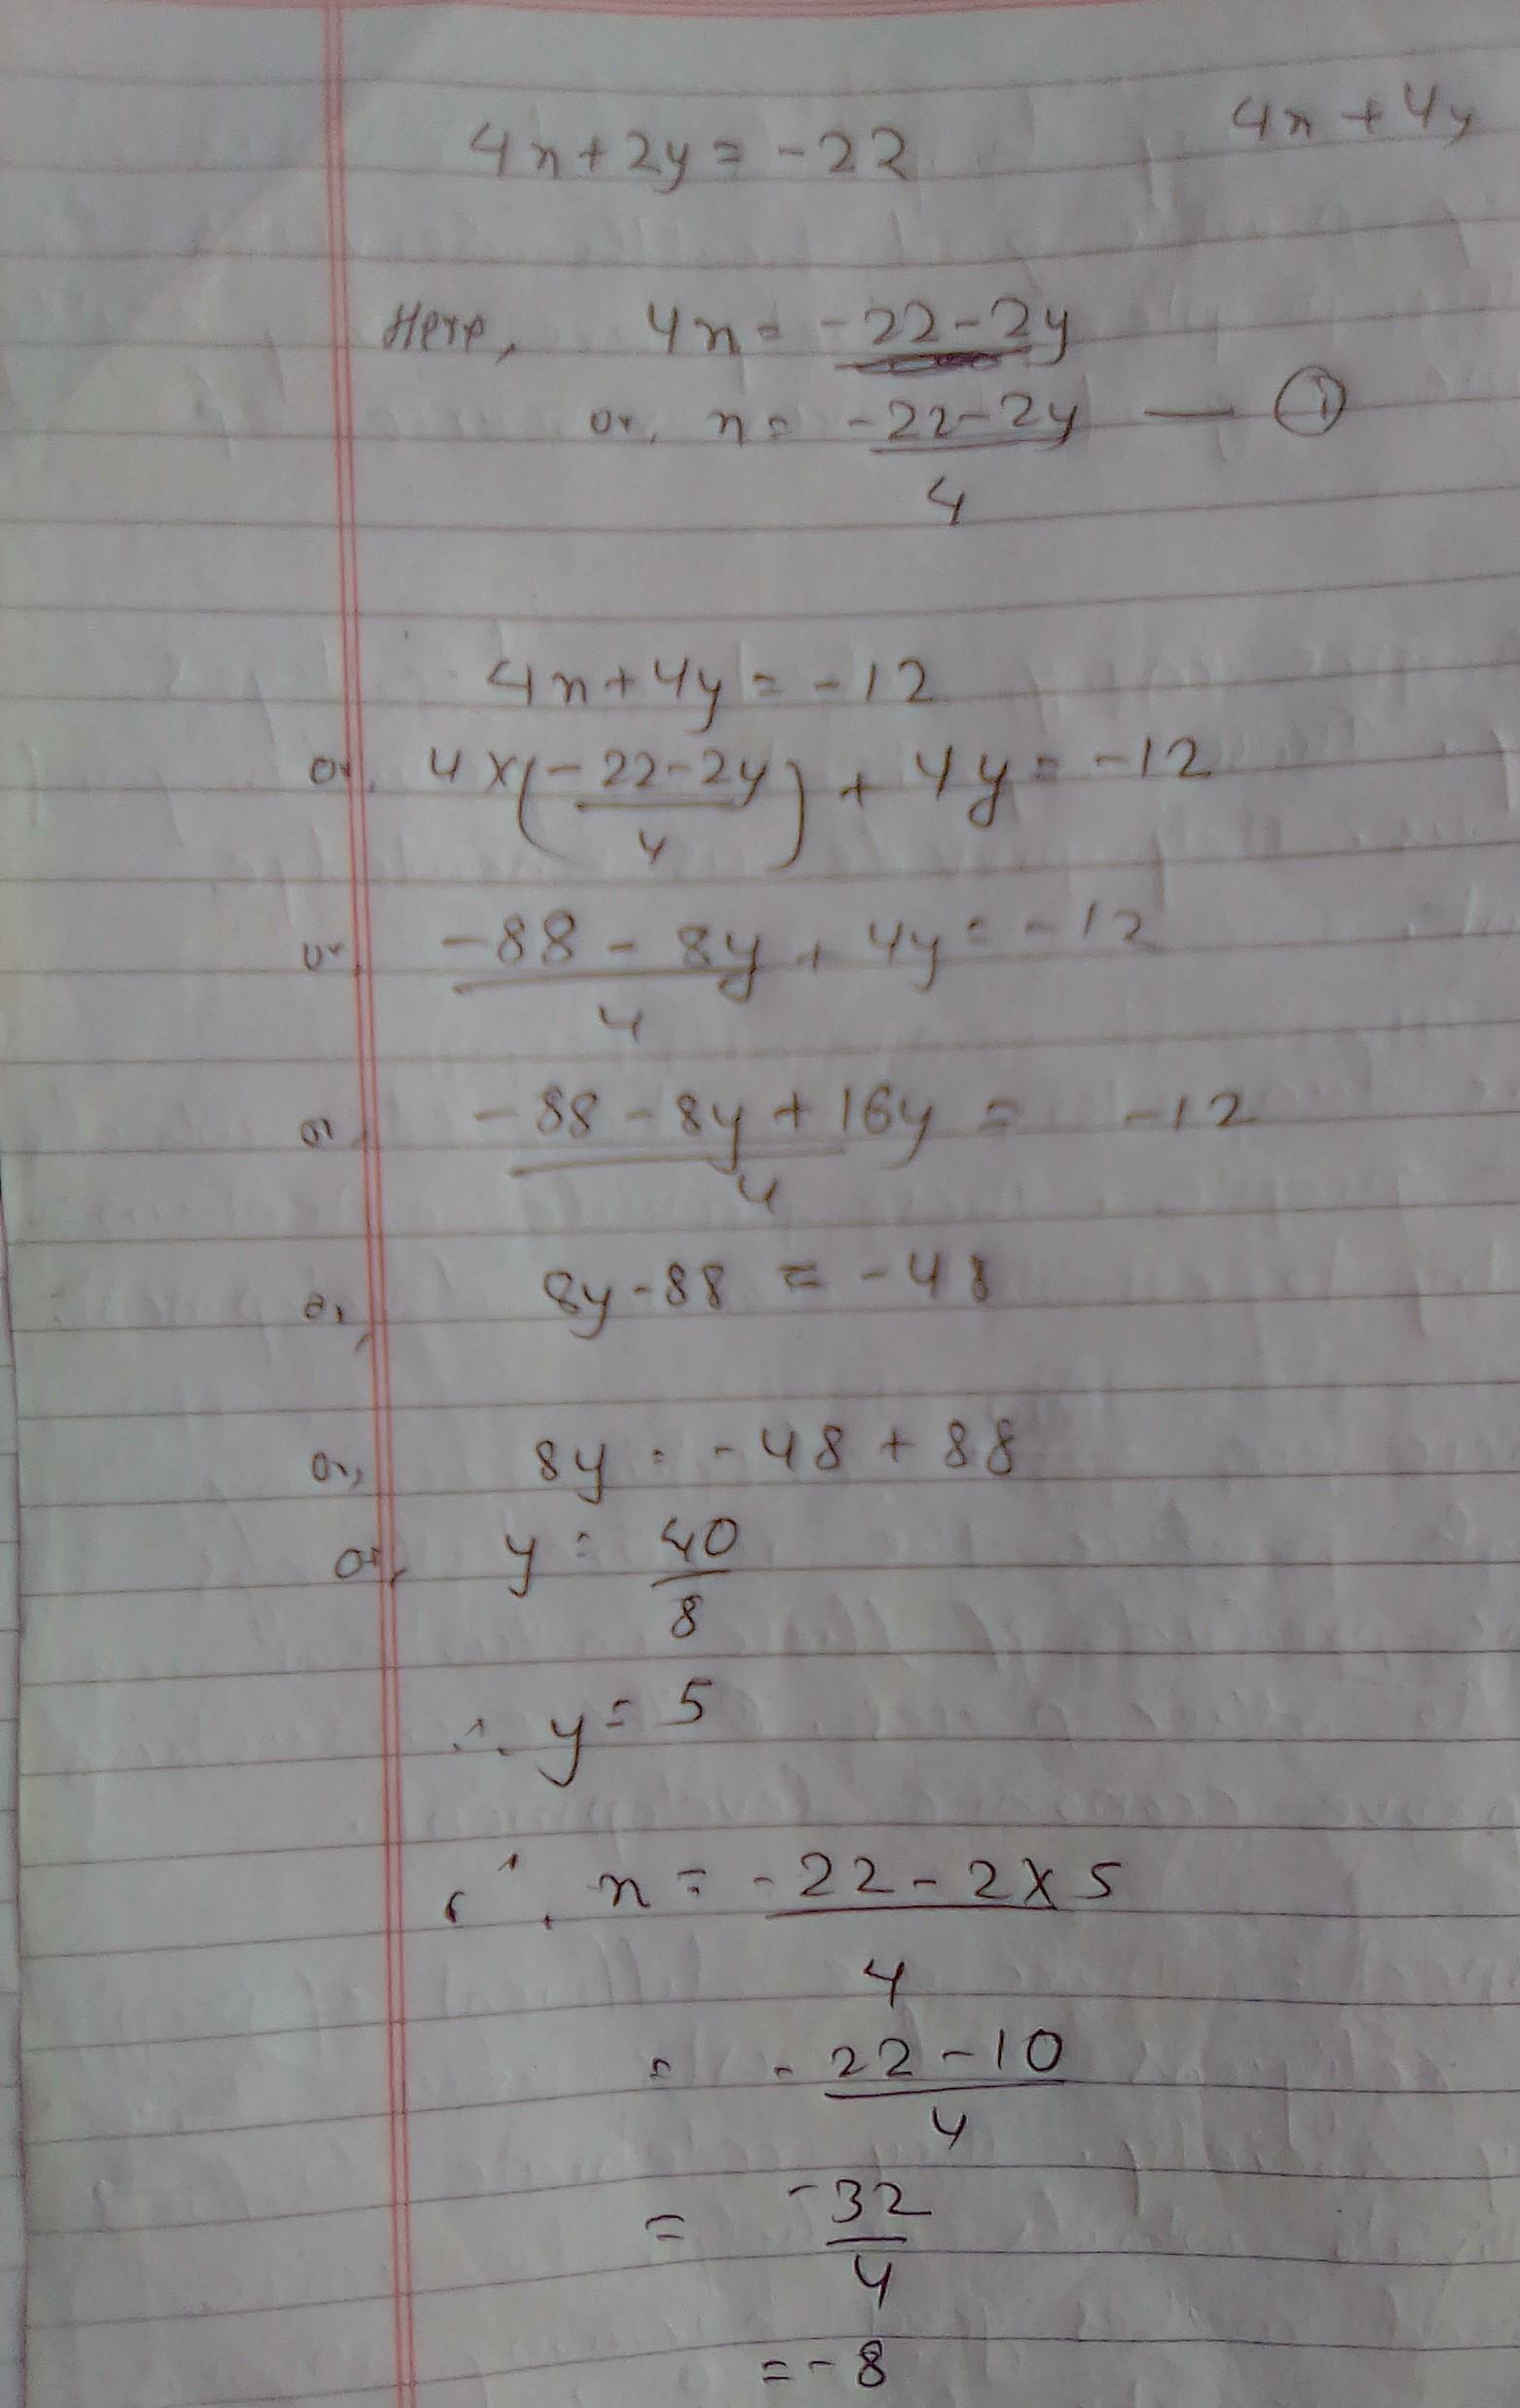 4x+2y = -22    4x + 4y
Here, 4x = -22-2y
or, x = (-22-2y)/4 — ①
4x+4y = -12
or, 4×((-22-2y)/4) + 4y = -12
or, (-88 - 8y)/4 + 4y = -12
or, (-88 - 8y + 16y)/4 = -12
or, 8y - 88 = -48
or, 8y = -48 + 88
or, y = 40/8
∴ y = 5
∴ x = (-22 - 2×5)/4
= (-22 - 10)/4
= -32/4
= -8